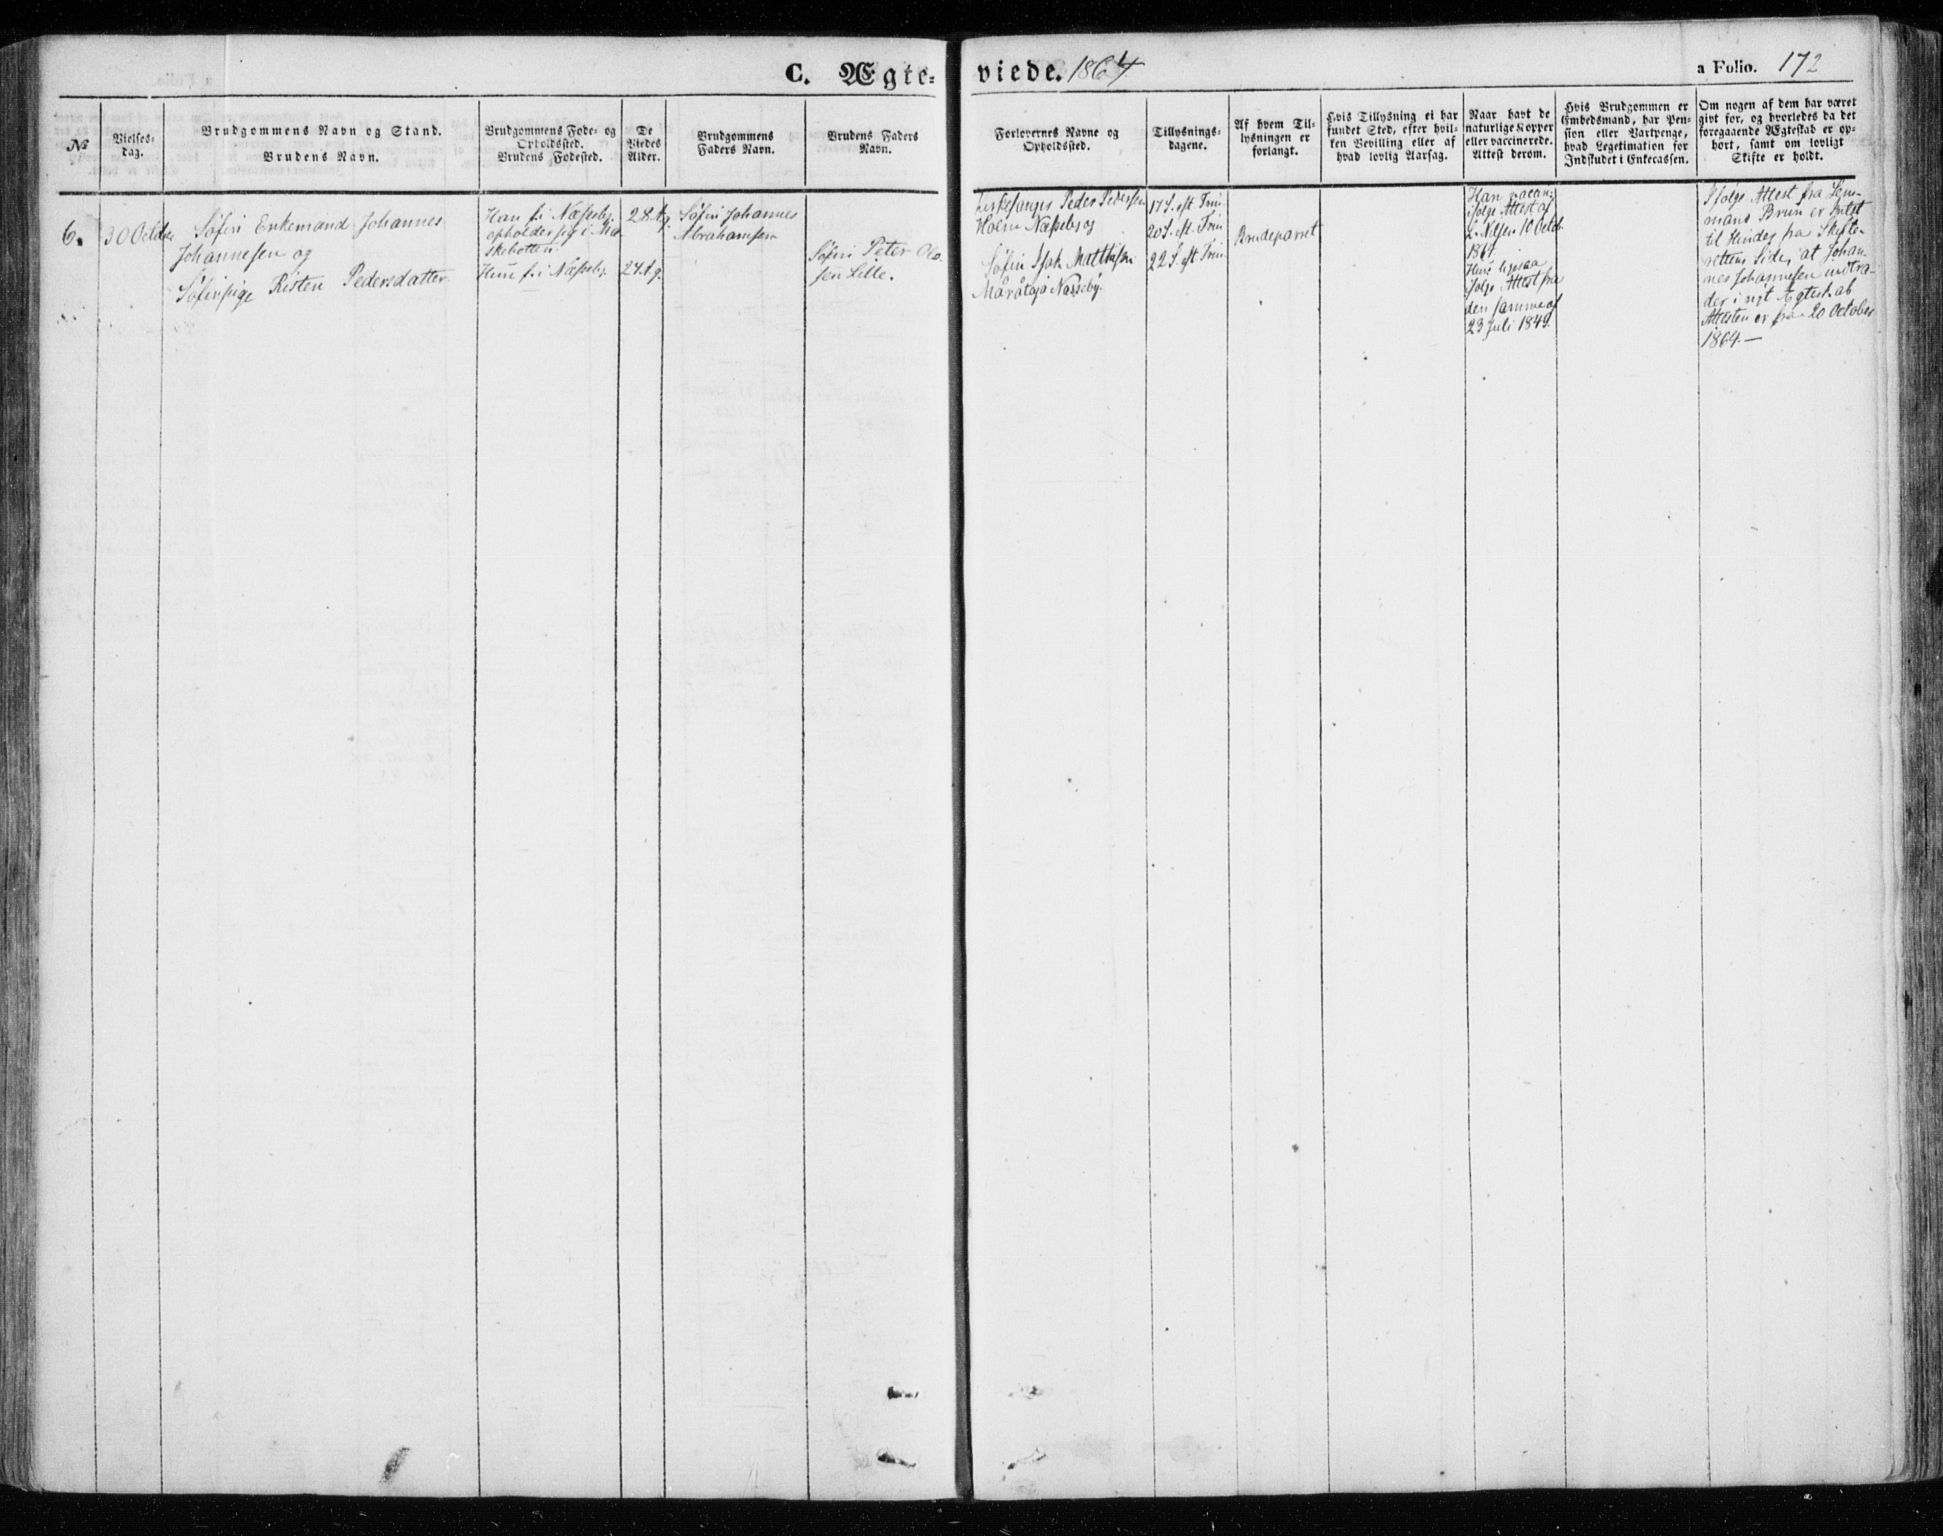 C. Ægte-
viede. 1864
a Folio. 172
№
Vielses-
dag.
Brudgommens Navn og Stand.
Brudens Navn.
Brudgommens Føde- og
Opholdssted.
Brudens Fødested.
De
Viedes
Alder.
Brudgommens
Faders Navn.
Brudens Faders
Navn.
Forlovernes Navne og
Opholdssted.
Tillysnings-
dagene.
Af hvem Til-
lysningen er
forlangt.
Hvis Tillysning ei har
fundet Sted, efter hvil-
ken Bevilling eller af
hvad lovlig Aarsag.
Naar havt de
naturlige Kopper
eller vaccinerede.
Attest derom.
Hvis Brudgommen er
Embedsmand, har Pen-
sion eller Vartpenge,
hvad Legetimation for
Indskudet i Enkecassen.
Om nogen af dem har været
givt før, og hvorledes da det
foregaaende Ægteskab er op-
hørt, samt om lovligt
Skifte er holdt.
6.
30 Octbr
Søfin Enkemand Johannes
Johannesen og
Søfinpige Risten Pedersdatter
Han f. i Næsseby.
opholder sig i
Hun f. i Næsseby.
28.
24.
Søfin Johannes
Abrahamsen
Søfin Peter Ol-
sen Lille.
Kirkesanger Peder Pedersen
Holm Næsseby og
Søfin Isak Mathisen
Næsseby.
17 S. eft. Trin
20 S. eft. Trin
22 S. eft. Trin
Brudeparret
Han vaccin:
ifølge Attest af
10 Octob.
1864.
Hun ligesaa
ifølge Attest fra
den samme af
23 Juli 1849.
Ifølge Attest fra Lens-
mand Brun er Intet
til Hinder fra Skifte-
rettens Side, at Johan-
nes Johannesen indtræ-
der i nyt Ægtesk.ab
Attesten er fra 20 October
1864.—